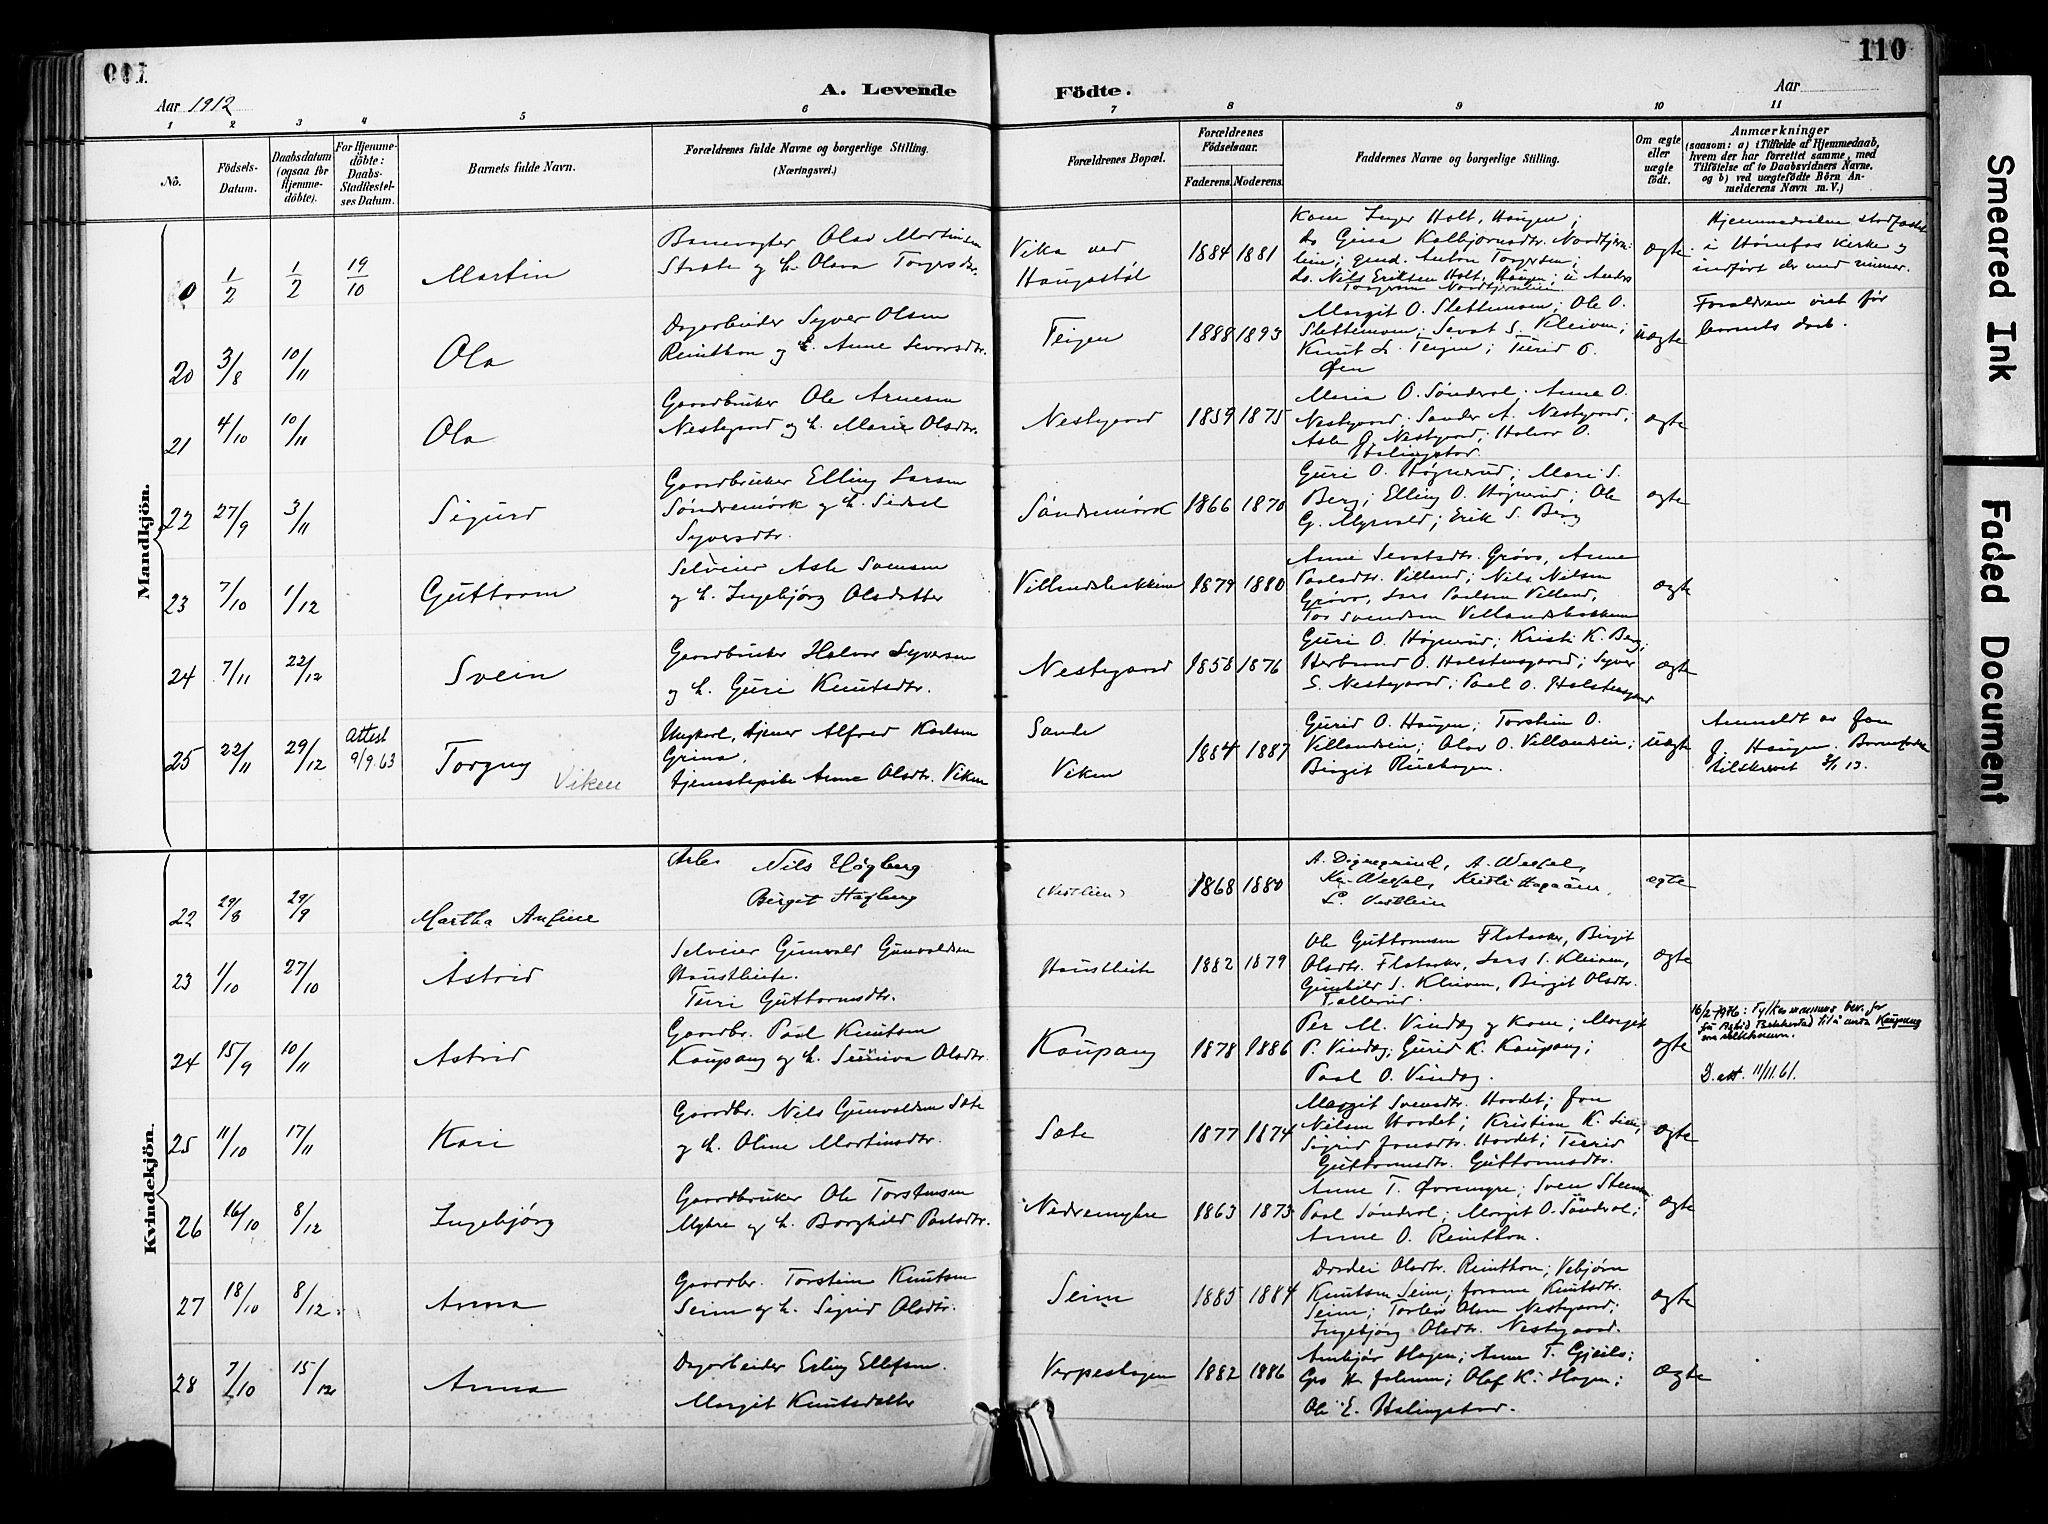 110
A. Levende Födte.
Aar 1912
Aar
1 2 3 4 5 6 7 8 9 10 11
No.
Födsels-Datum.
Daabsdatum (ogsaa for Hjemmedöbte).
For Hjemmedöbte: Daabs-Stadfæstelses Datum.
Barnets fulde Navn.
Forældrenes fulde Navne og borgerlige Stilling. (Næringsvei.)
Forældrenes Bopæl.
Forældrenes Födselsaar.
Faderens. Moderens.
Faddernes Navne og borgerlige Stilling.
Om ægte eller uægte födt.
Anmærkninger
(saasom: a) i Tilfælde af Hjemmedaab, hvem der har forrettet samme, med Tilföielse af to Daabsvidners Navne, og b) ved uægtefödte Börn Anmelderens Navn m. V.)
Mandkjön.
0 1/2 1/2 19/10 Martin
Banevogter Olav Martinsen
Strate og h. Olava Torgersdtr.
Vika ved
Haugastøl
1884 1881
Kone Inger Holt, Haugen;
do Gina Kolbjørnsdtr. Nordtjern-
lien; gmd. Anton Torgersen;
do. Nils Eriksen Holt, Haugen; u Anders
Torgersen Nordtjernlien
ægte
Hjemmedaaben stadfæstet
i Hønefos Kirke og
indført der med numer.
20 3/8 10/11 Ola
Dagarbeider Syver Olsen
Reinton og h. Anne Seversdtr.
Teigen
1888 1893
Margit O. Slettemoen; Ole O.
Slettemoen; Sevat S. Kleiven;
Knut L. Teigen; Turid O.
Øen
uægte
Forældrene viet før
barnets daab.
21 4/10 10/11 Ola
Gaardbruker Ole Arnesen
Nestegaard og h. Marie Olsdtr.
Nestegaard
1859 1875
Maria O. Søndrol; Anne O.
Nestegaard; Sander A. Nestegaard;
Asle J. Nestegaard; Halvor O.
Halingstad.
ægte
22 27/9 3/11 Sigurd
Gaardbruker Elling Larsen
Søndremørk og h. Sidsel
Syversdtr.
Søndremørk
1866 1870
Guri O. Høgnerud; Mari S.
Berg; Elling O. Høgnerud; Ole
G. Myrvold; Erik S. Berg
ægte
23 7/10 1/12 Guttorm
Selveier Asle Svensen
og h. Ingebjørg Olsdatter
Villandsbakken
1879 1880
Anne Sevatsdtr. Grøvo, Anne
Paalsdtr. Villand; Nils Nilsen
Grøvo, Lars Paalsen Villand,
Tor Svendsen Villandsbakken
ægte
24 7/11 22/12 Svein
Gaardbruker Halvor Syversen
og h. Guri Knutsdtr.
Nestegaard
1858 1876
Guri O. Høgnerud; Kristi K. Berg;
Herbrand O. Holstensgaard; Syver
S. Nestegaard; Paal O. Holstensgaard
ægte
25 22/11 29/12 Attest 9/9.63 Torgny Viken
Ungkarl, tjener Alfred Karlsen
Grina,
tjenestepike Anne Olsdtr. Viken
Sande
Viken
1884 1887
Gurid O. Haugen; Torstein O.
Villandseie; Olav O. Villandseie;
Birgit Ruehagen.
uægte
Anmeldt av Jon
J. Haugen. Barnefader
tilskrevet 3/1 13.
Kvindekjön.
22 29/8 29/9 Martha Anfine
Arb. Nils Høgberg
Birgit Høgberg
(Vestlien)
1868 1880
A. Digregrind, A. Wessel,
Kr. Wessel, Kristi Hagaaen,
L. Vestlein
ægte
23 1/10 27/10 Astrid
Selveier Gunvald Gunvaldsen
Haustleite.
Turi Guttormsdtr.
Haustleite
1882 1879
Ole Guttormsen Flataaker, Birgit
Olsdtr. Flataaker, Lars S. Kleiven,
Gunhild S. Kleiven, Birgit Olsdtr.
Tallerud.
ægte
24 15/9 10/11 Astrid
Gaardbr. Paal Knutsen
Kaupang og h. Sunniva Olsdtr.
Kaupang
1878 1886
Per M. Vindeg og Kone; Margit
P. Vindeg; Gurid K. Kaupang;
Paal O. Vindeg.
ægte
16/2-1976: Fylkesmannens bev. for
fr. Astrid Bakkestad til å anta Kaupang
som slektsnavn.
D.att. 11/11.61.
25 11/10 17/11 Kari
Gaardbr. Nils Gunvaldsen Sate
og h. Oline Martinsdtr.
Sate
1877 1874
Margit Svensdtr. Hovdet; Jon
Nilsen Hovdet; Kristian K. Lien;
Sigrid Jonsdtr. Hovdet; Turid
Guttormsdtr. Guttormsdtr.
ægte
26 16/10 8/12 Ingebjørg
Gaardbruker Ole Torstensen
Myhre og h. Borghild Paalsdtr.
Nedremyhre
1863 1873
Anne T. Øvremyre; Sven Steen;
Paal Søndrol; Margit O. Søndrol;
Anne O. Reinton.
ægte
27 18/10 8/12 Anna
Gaardbr. Torstein Knutsen
Seim og h. Sigrid Olsdtr.
Seim
1885 1884
Dordei Olsdtr. Reinton; Vebjørn
Knutsen Seim; Jorand Knutsdtr.
Seim; Torleiv Olsen Nestegaard;
Ingebjørg Olsdtr. Nestegaard.
ægte
28 7/10 15/12 Anna
Dagarbeider Erling Ellefsen.
Margit Knutsdatter
Verpeshagen
1882 1886
Ambjør Hagen; Anne T. Gjeilo;
Gro H. Johnsen; Olaf K. Hagen;
Ole E. Halingstad.
ægte
Smeared Ink
Faded Document